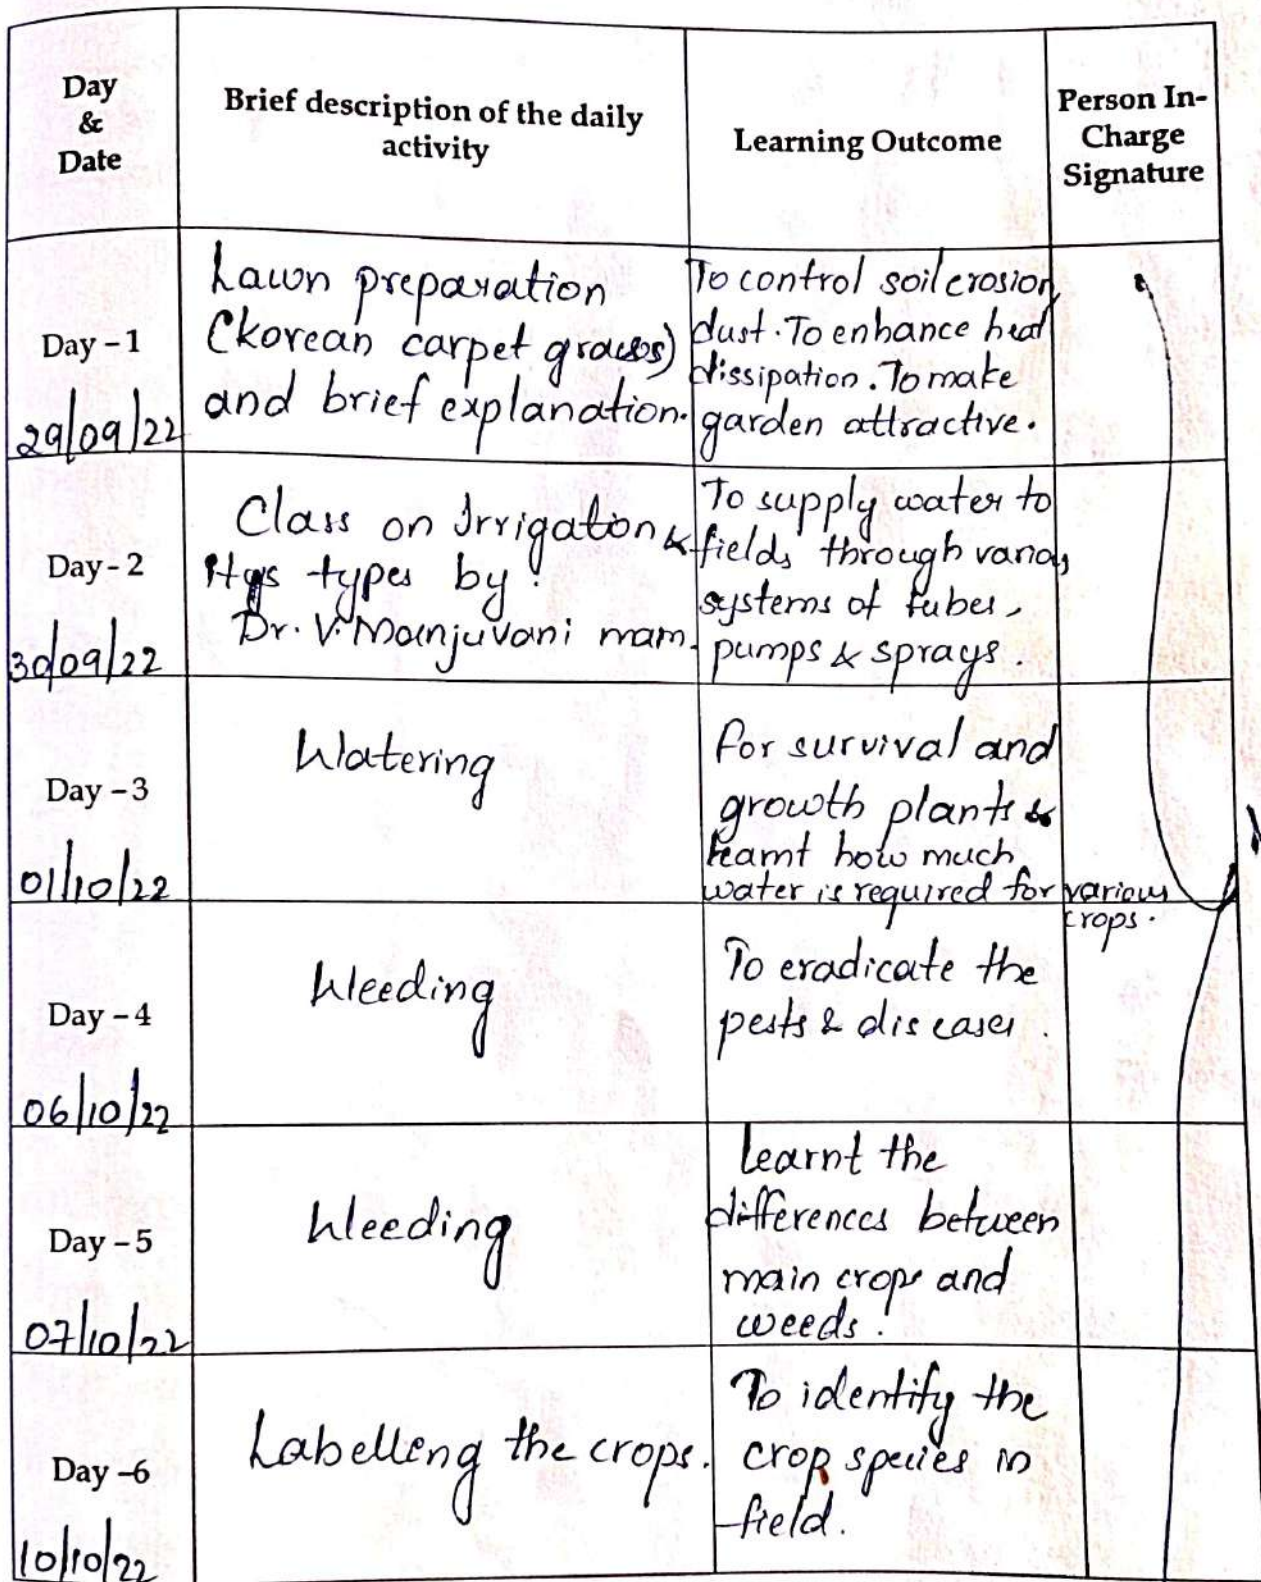 Day
&
Date
Brief description of the daily
activity
Learning Outcome
Person In-
Charge
Signature
Day – 1
29/09/22
Lawn preparation
(korean carpet grasses)
and brief explanation.
To control soil erosion,
dust. To enhance heat
dissipation. To make
garden attractive.
Day - 2
30/09/22
Class on Irrigation &
its types by :
Dr. V. Manjuvani mam.
To supply water to
fields through various
systems of tubes,
pumps & sprays.
Day – 3
01/10/22
Watering
for survival and
growth plants &
learnt how much
water is required for various
crops.
Day – 4
06/10/22
Weeding
To eradicate the
pests & diseases.
Day – 5
07/10/22
Weeding
Learnt the
differences between
main crops and
weeds.
Day –6
10/10/22
Labelleng the crops.
To identify the
crop species in
field.